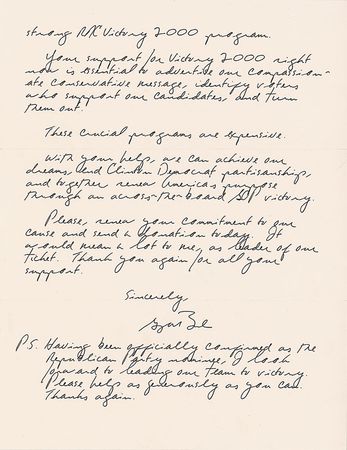 strong RNC Victory 2000 program.
Your support for Victory 2000 right
now is essential to advertise our compassion-
ate conservative message, identify voters
who support our candidates, and turn
them out.
These crucial programs are expensive.
With your help, we can achieve our
dreams, end Clinton Democrat partisanship,
and together renew America's purpose
through an across-the-board GOP victory.
Please, renew your commitment to our
cause and send a donation today. It
would mean a lot to me, as leader of our
ticket. Thank you again for all your
support.
Sincerely
P.S. Having been officially confirmed as the
Republican Party nominee, I look
forward to leading our team to victory.
Please help as generously as you can.
Thanks again.